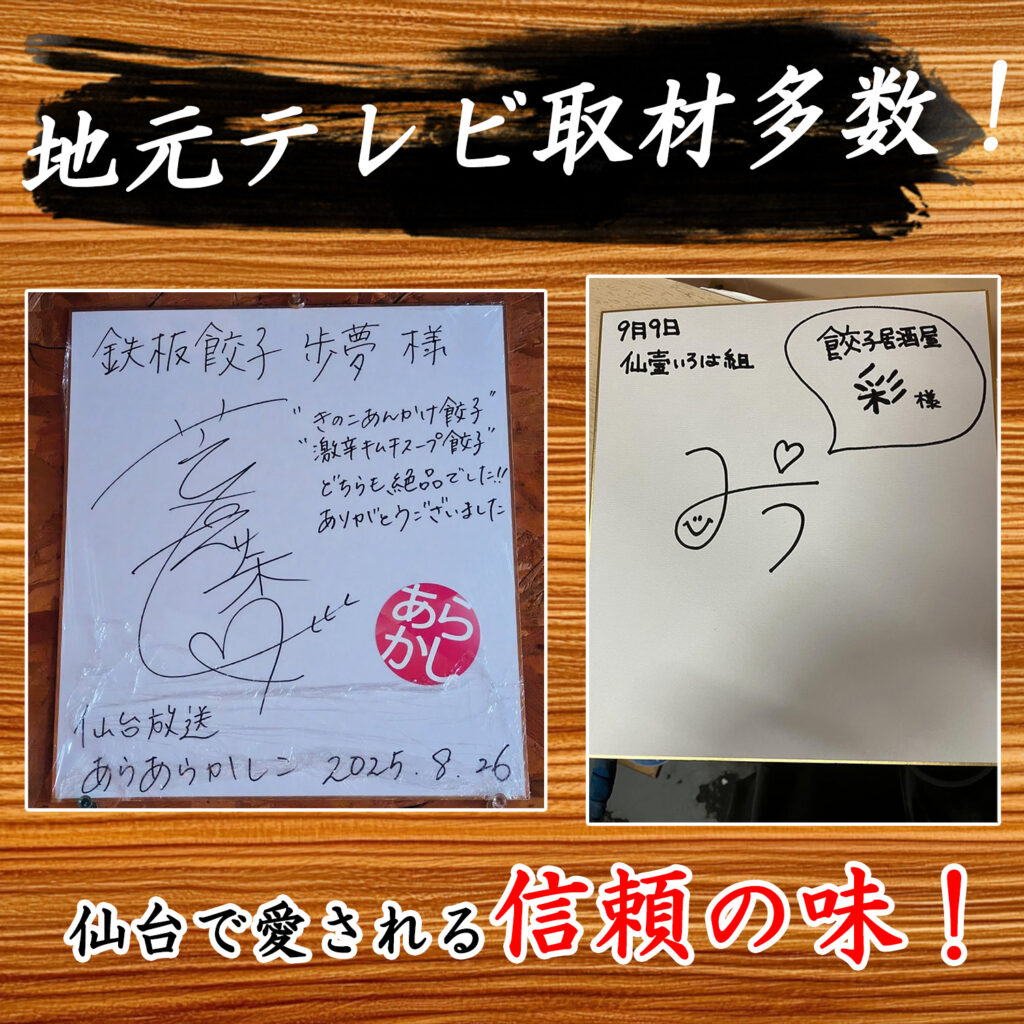 地元テレビ取材多数！
鉄板餃子 歩夢 様
"きのこあんかけ餃子"
"激辛キムチスープ餃子"
どちらも絶品でした!!
ありがとうございました
あら
かし
仙台放送
あらあらかしこ 2025.8.26
9月9日
仙臺いろは組
餃子居酒屋
彩 様
みう
仙台で愛される信頼の味！